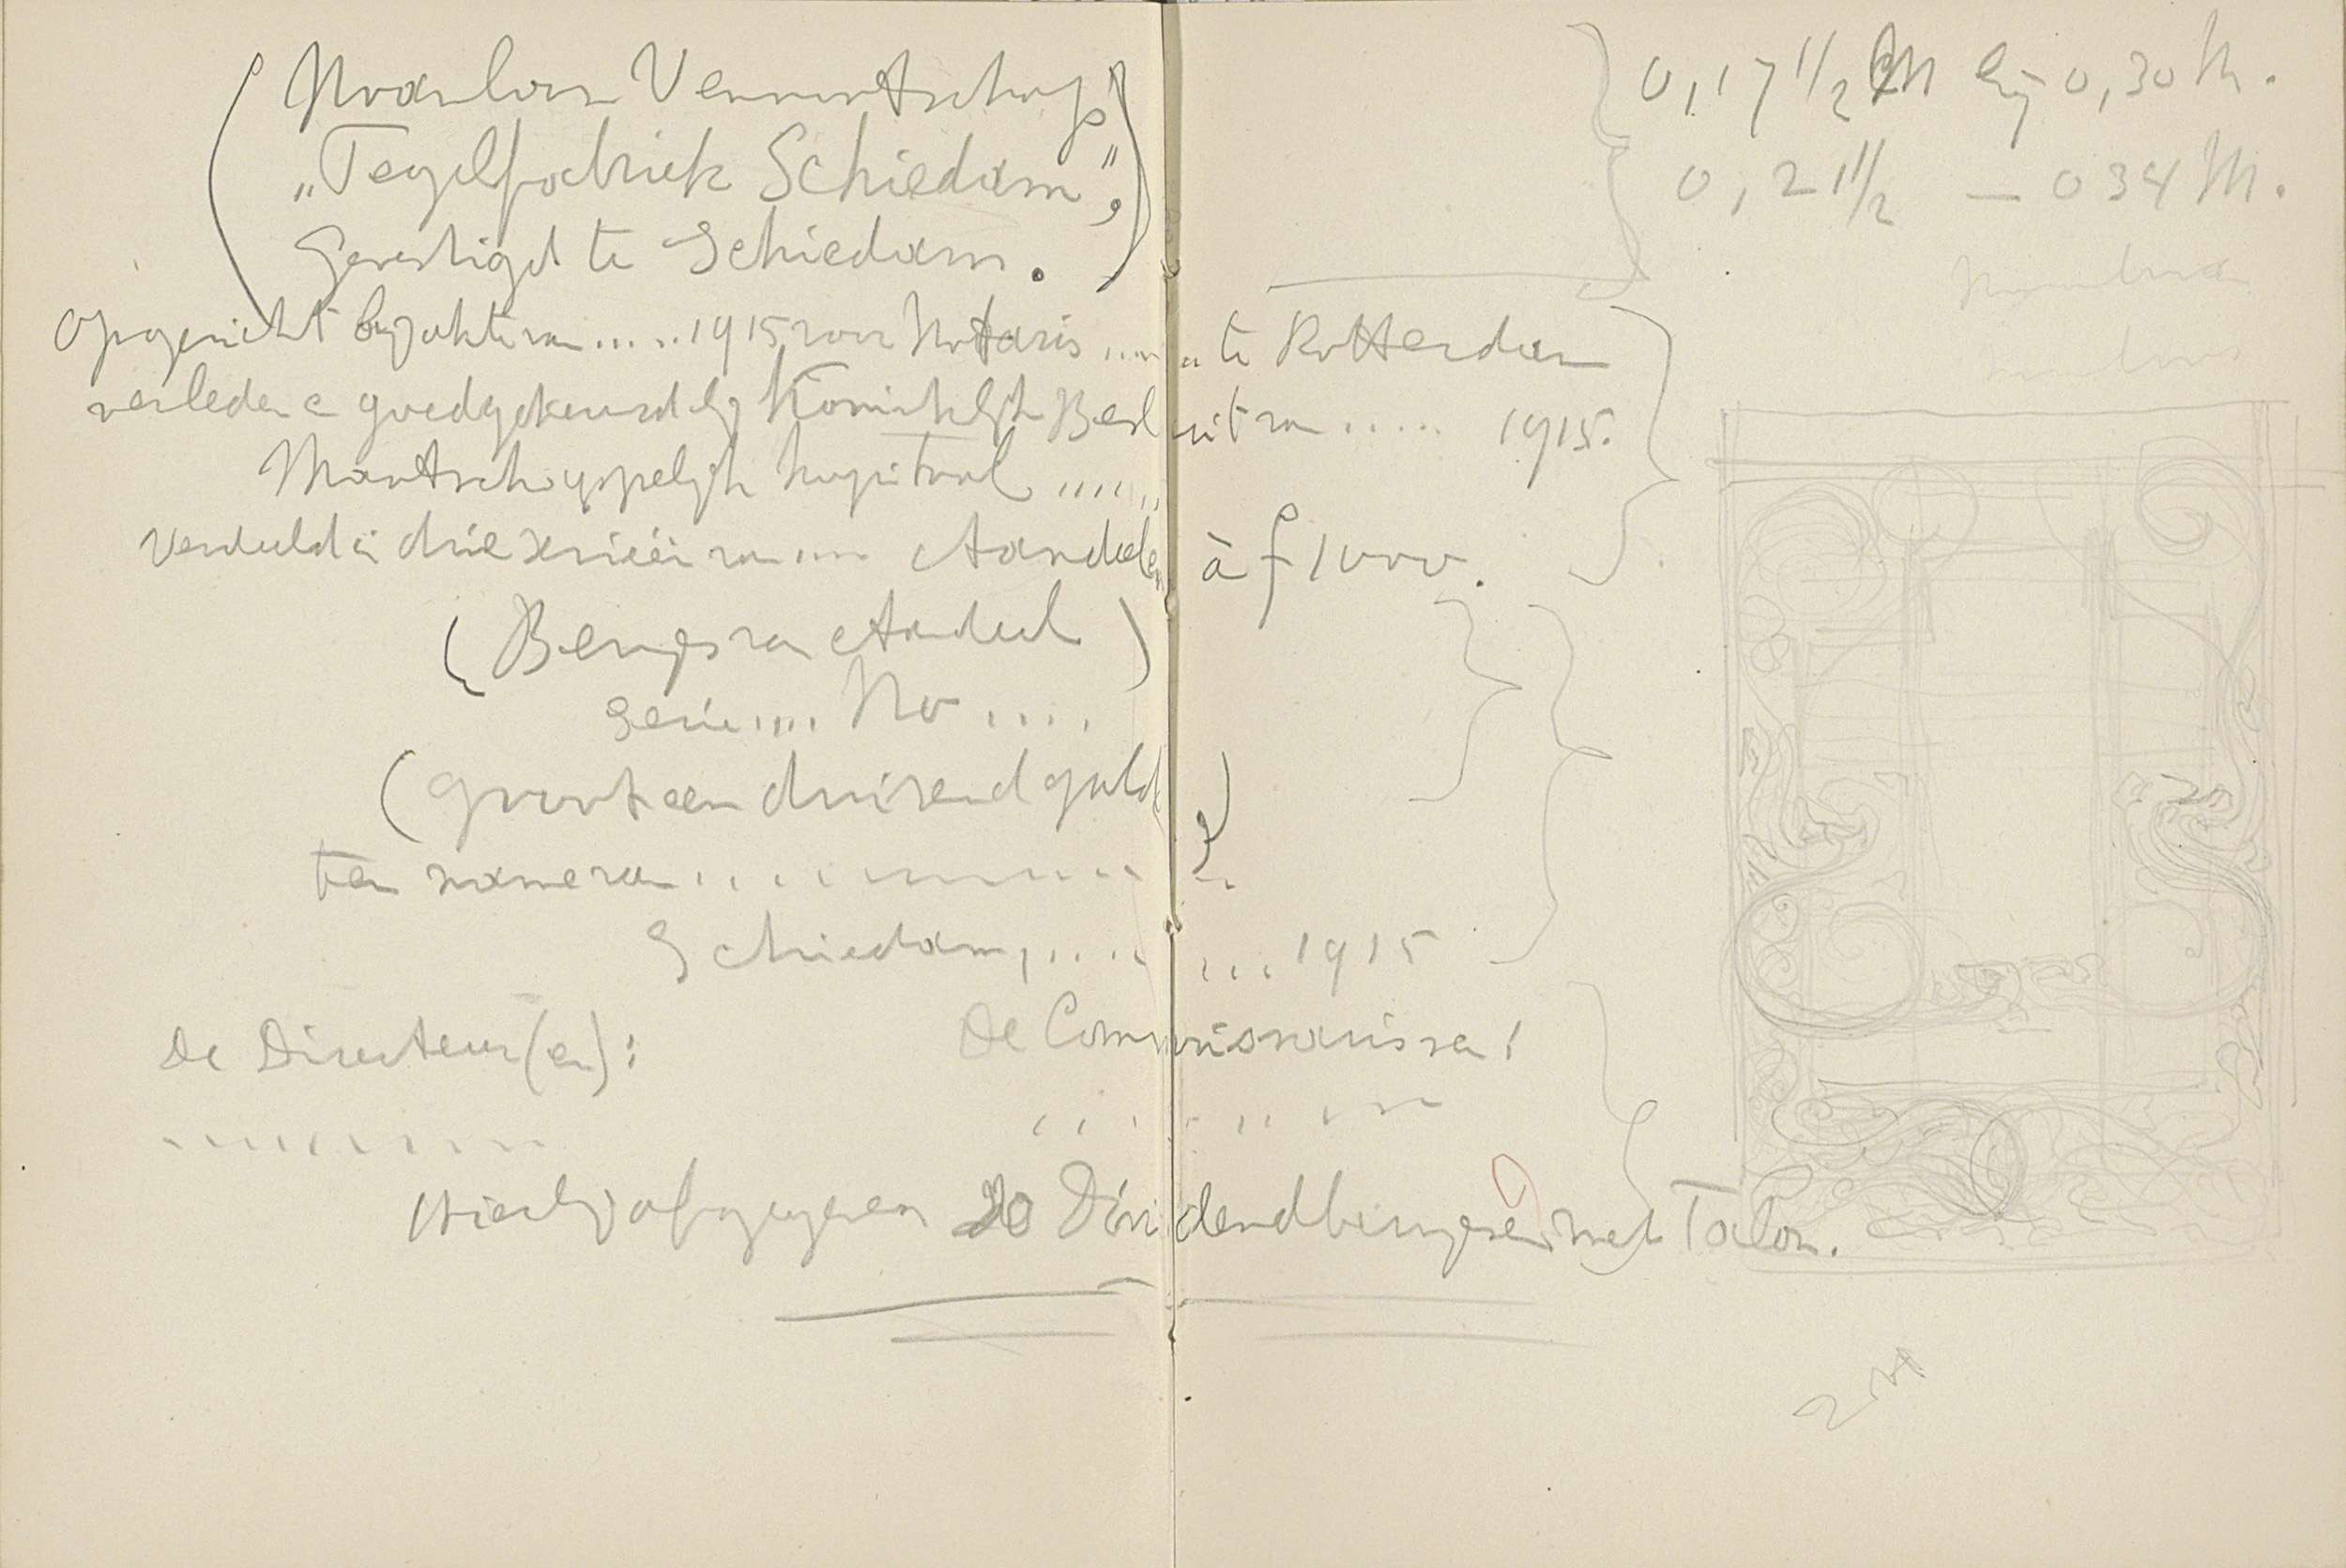 Naamloze Vennootschap,
„Tegelfabriek Schiedam”,
Gevestigd te Schiedam.
Opgericht bij akte van ..... 1915 voor Notaris ..... te Rotterdam
verleden e goedgekeurd bij Koninklijk Besluit van ..... 1915.
Maatschappelijk kapitaal ......
verdeeld in drie serieën van .... Aandeelen à f 1000.
(Bewijs van Aandeel)
Serie .... No ....
(groot een duizend guld)
ten name van ..........
Schiedam, .... ... 1915
De Directeur(en): De Commissarissen:
Hierbij afgegeven 20 Dividendbewijzen met Talon.
0,17 1/2 M bij 0,30 M.
0,21 1/2 — 0 34 M.